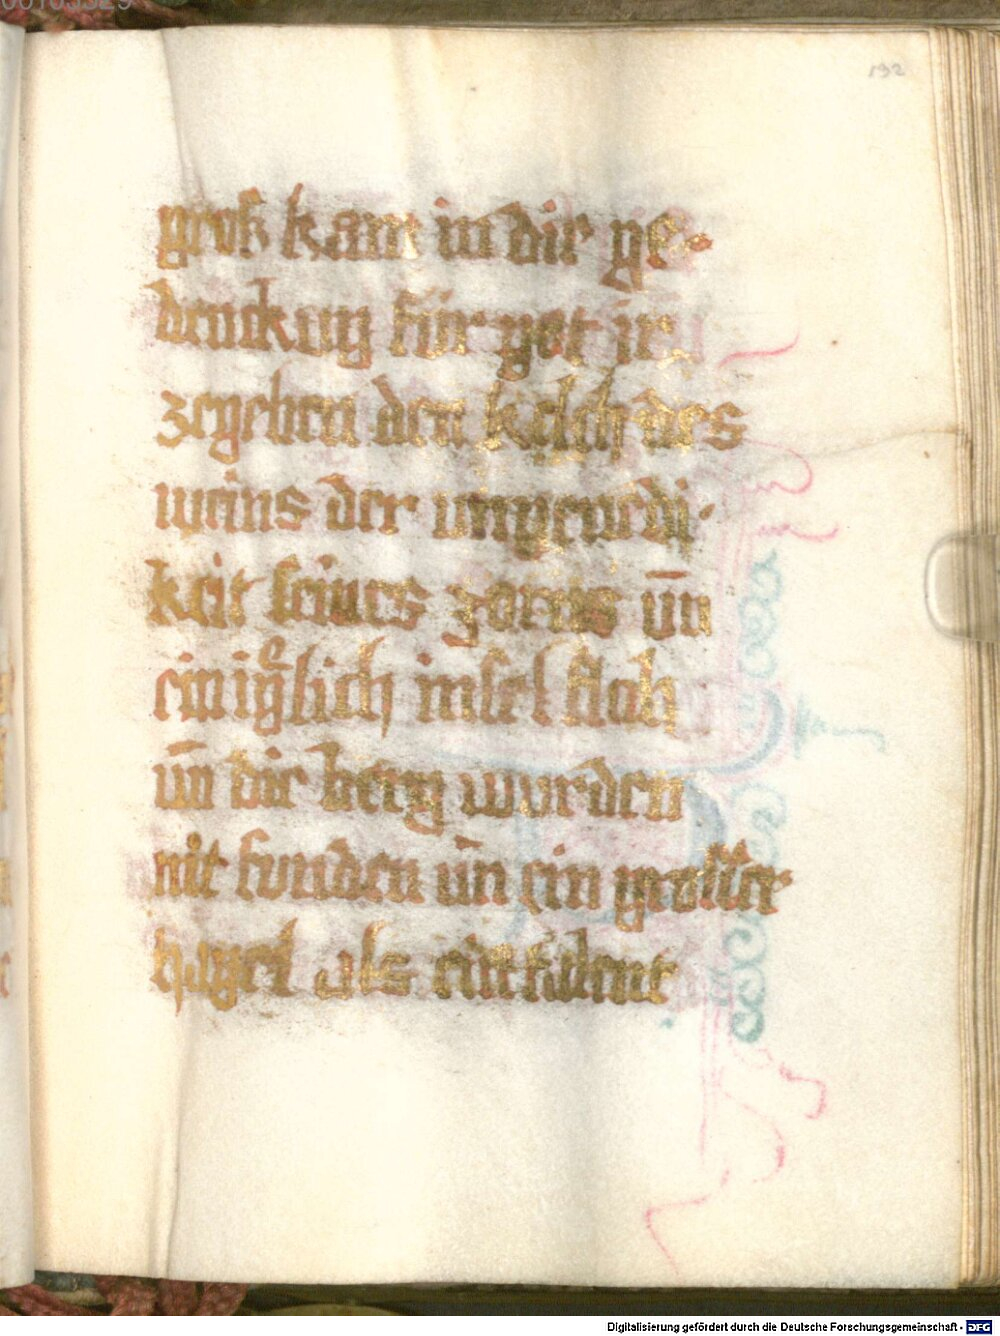 192
groß kam in die ge-
denckung für got ir
zegeben den kelch des
weins der ungewedi-
keit seines zorns un̄
einigͤlich insel floh
un̄ die berg wurden
nit funden un̄ ein grosser
hagel als ein
Digitalisierung gefördert durch die Deutsche Forschungsgemeinschaft - DFG